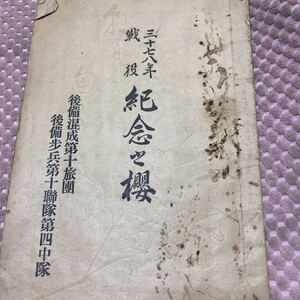 三十七八年
戦役
紀念之櫻
後備混成第十旅團
後備歩兵第十聯隊第四中隊